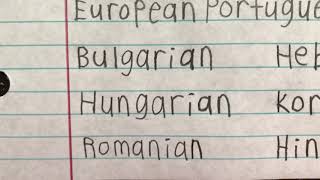 European Portugue
Bulgarian Heb
Hungarian Kor
Romanian Hin